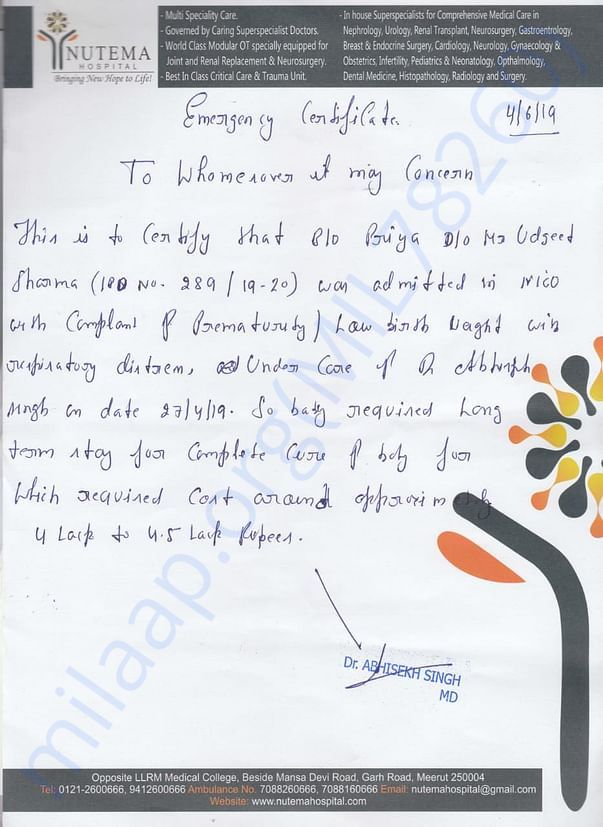 NUTEMA
HOSPITAL
Bringing New Hope to Life!
- Multi Speciality Care.
- Governed by Caring Superspecialist Doctors.
- World Class Modular OT specially equipped for
Joint and Renal Replacement & Neurosurgery.
- Best In Class Critical Care & Trauma Unit.
- In house Superspecialists for Comprehensive Medical Care in
Nephrology, Urology, Renal Transplant, Neurosurgery, Gastroentrology,
Breast & Endocrine Surgery, Cardiology, Neurology, Gynaecology &
Obstetrics, Infertility, Pediatrics & Neonatology, Opthalmology,
Dental Medicine, Histopathology, Radiology and Surgery.
Emergency Certificate.
4/6/19
To Whomesoever it may Concern
This is to Certify that B/O Priya D/O Mr Udgeet
Sharma (IPD No. 289/19-20) was admitted in NICO
with Complant of Prematurity / Low birth Weght with
respiratory distress, Under Care of Dr Abhisekh
Singh on date 27/4/19. So baby required Long
term stay for Complete Cure of baby for
Which required Cost around approximetly
4 Lack to 4.5 Lack Rupees.
Dr. ABHISEKH SINGH
MD
milaap.org(MIL782660)
Opposite LLRM Medical College, Beside Mansa Devi Road, Garh Road, Meerut 250004
Tel: 0121-2600666, 9412600666 Ambulance No. 7088260666, 7088160666 Email: nutemahospital@gmail.com
Website: www.nutemahospital.com